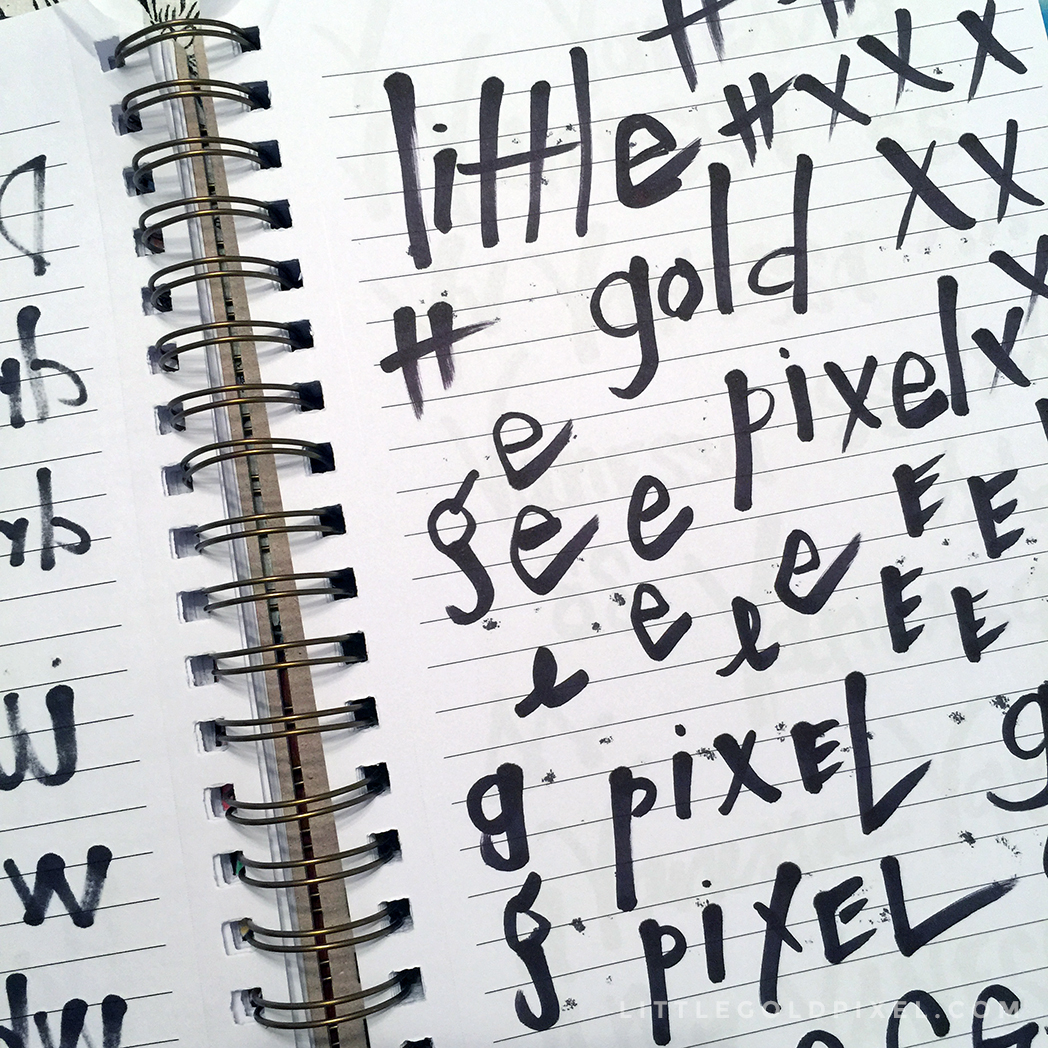 # #
little # x x x
gold x x
#
pixel x x
e
g e e E E
e e e E E
e
g pixEL g
g pixEL
LITTLEGOLDPIXEL.COM
w
w